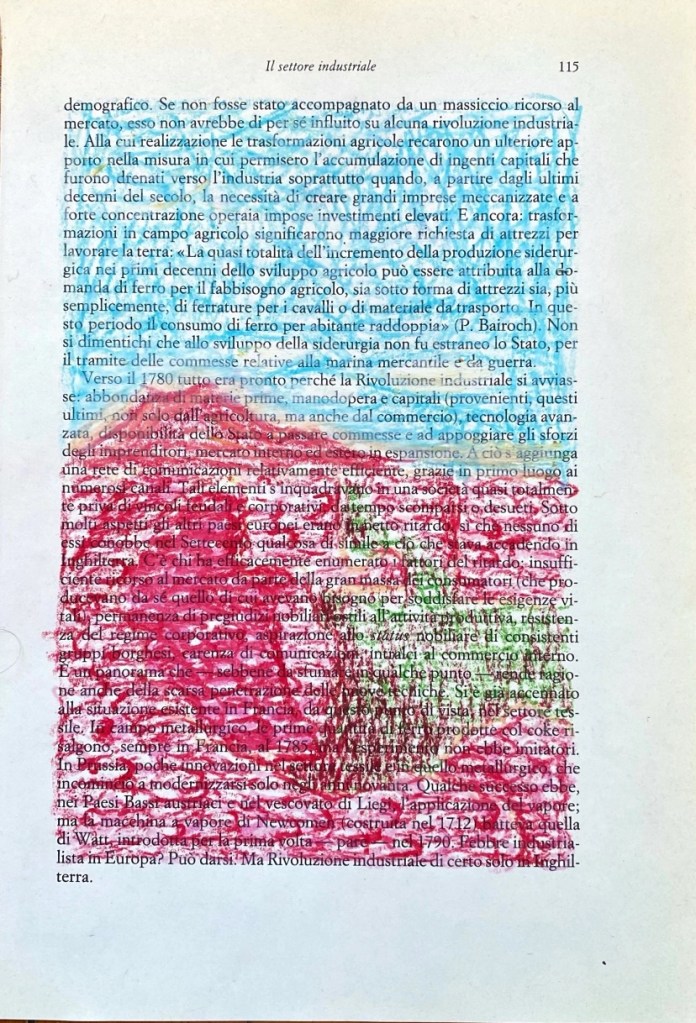 Il settore industriale 115
demografico. Se non fosse stato accompagnato da un massiccio ricorso al
mercato, esso non avrebbe di per sé influito su alcuna rivoluzione industria-
le. Alla cui realizzazione le trasformazioni agricole recarono un ulteriore ap-
porto nella misura in cui permisero l'accumulazione di ingenti capitali che
furono drenati verso l'industria soprattutto quando, a partire dagli ultimi
decenni del secolo, la necessità di creare grandi imprese meccanizzate e a
forte concentrazione operaia impose investimenti elevati. E ancora: trasfor-
mazioni in campo agricolo significarono maggiore richiesta di attrezzi per
lavorare la terra: «La quasi totalità dell'incremento della produzione siderur-
gica nei primi decenni dello sviluppo agricolo può essere attribuita alla do-
manda di ferro per il fabbisogno agricolo, sia sotto forma di attrezzi sia, più
semplicemente, di ferrature per i cavalli o di materiale da trasporto. In que-
sto periodo il consumo di ferro per abitante raddoppia» (P. Bairoch). Non
si dimentichi che allo sviluppo della siderurgia non fu estraneo lo Stato, per
il tramite delle commesse relative alla marina mercantile e da guerra.
Verso il 1780 tutto era pronto perché la Rivoluzione industriale si avvias-
se: abbondanza di materie prime, manodopera e capitali (provenienti, questi
ultimi, non solo dall'agricoltura, ma anche dal commercio), tecnologia avan-
zata, disponibilità dello Stato a passare commesse e ad appoggiare gli sforzi
degli imprenditori, mercato interno ed estero in espansione. A ciò s'aggiunga
una rete di comunicazioni relativamente efficiente, grazie in primo luogo ai
numerosi canali. Tali elementi s'inquadravano in una società quasi totalmen-
te priva di vincoli feudali e corporativi, da tempo scomparsi o desueti. Sotto
molti aspetti gli altri paesi europei erano in netto ritardo, sì che nessuno di
essi conobbe nel Settecento qualcosa di simile a ciò che stava accadendo in
Inghilterra. C'è chi ha efficacemente enumerato i fattori del ritardo: insuffi-
ciente ricorso al mercato da parte della gran massa dei consumatori (che pro-
ducevano da sé quello di cui avevano bisogno per soddisfare le esigenze vi-
tali), permanenza di pregiudizi nobiliari ostili all'attività produttiva, resisten-
za del regime corporativo, aspirazione allo status nobiliare di consistenti
gruppi borghesi, carenza di comunicazioni, intralci al commercio interno.
È un panorama che — sebbene da sfumare in qualche punto — rende ragio-
ne anche della scarsa penetrazione delle nuove tecniche. Si è già accennato
alla situazione esistente in Francia, da questo punto di vista, nel settore tes-
sile. In campo metallurgico, le prime quantità di ferro prodotte col coke ri-
salgono, sempre in Francia, al 1785, ma l'esperimento non ebbe imitatori.
In Prussia, poche innovazioni nel settore tessile e in quello metallurgico, che
incominciò a modernizzarsi solo negli anni novanta. Qualche successo ebbe,
nei Paesi Bassi austriaci e nel vescovato di Liegi, l'applicazione del vapore;
ma la macchina a vapore di Newcomen (costruita nel 1712) batteva quella
di Watt, introdotta per la prima volta — pare — nel 1790. Febbre industria-
lista in Europa? Può darsi. Ma Rivoluzione industriale di certo solo in Inghil-
terra.